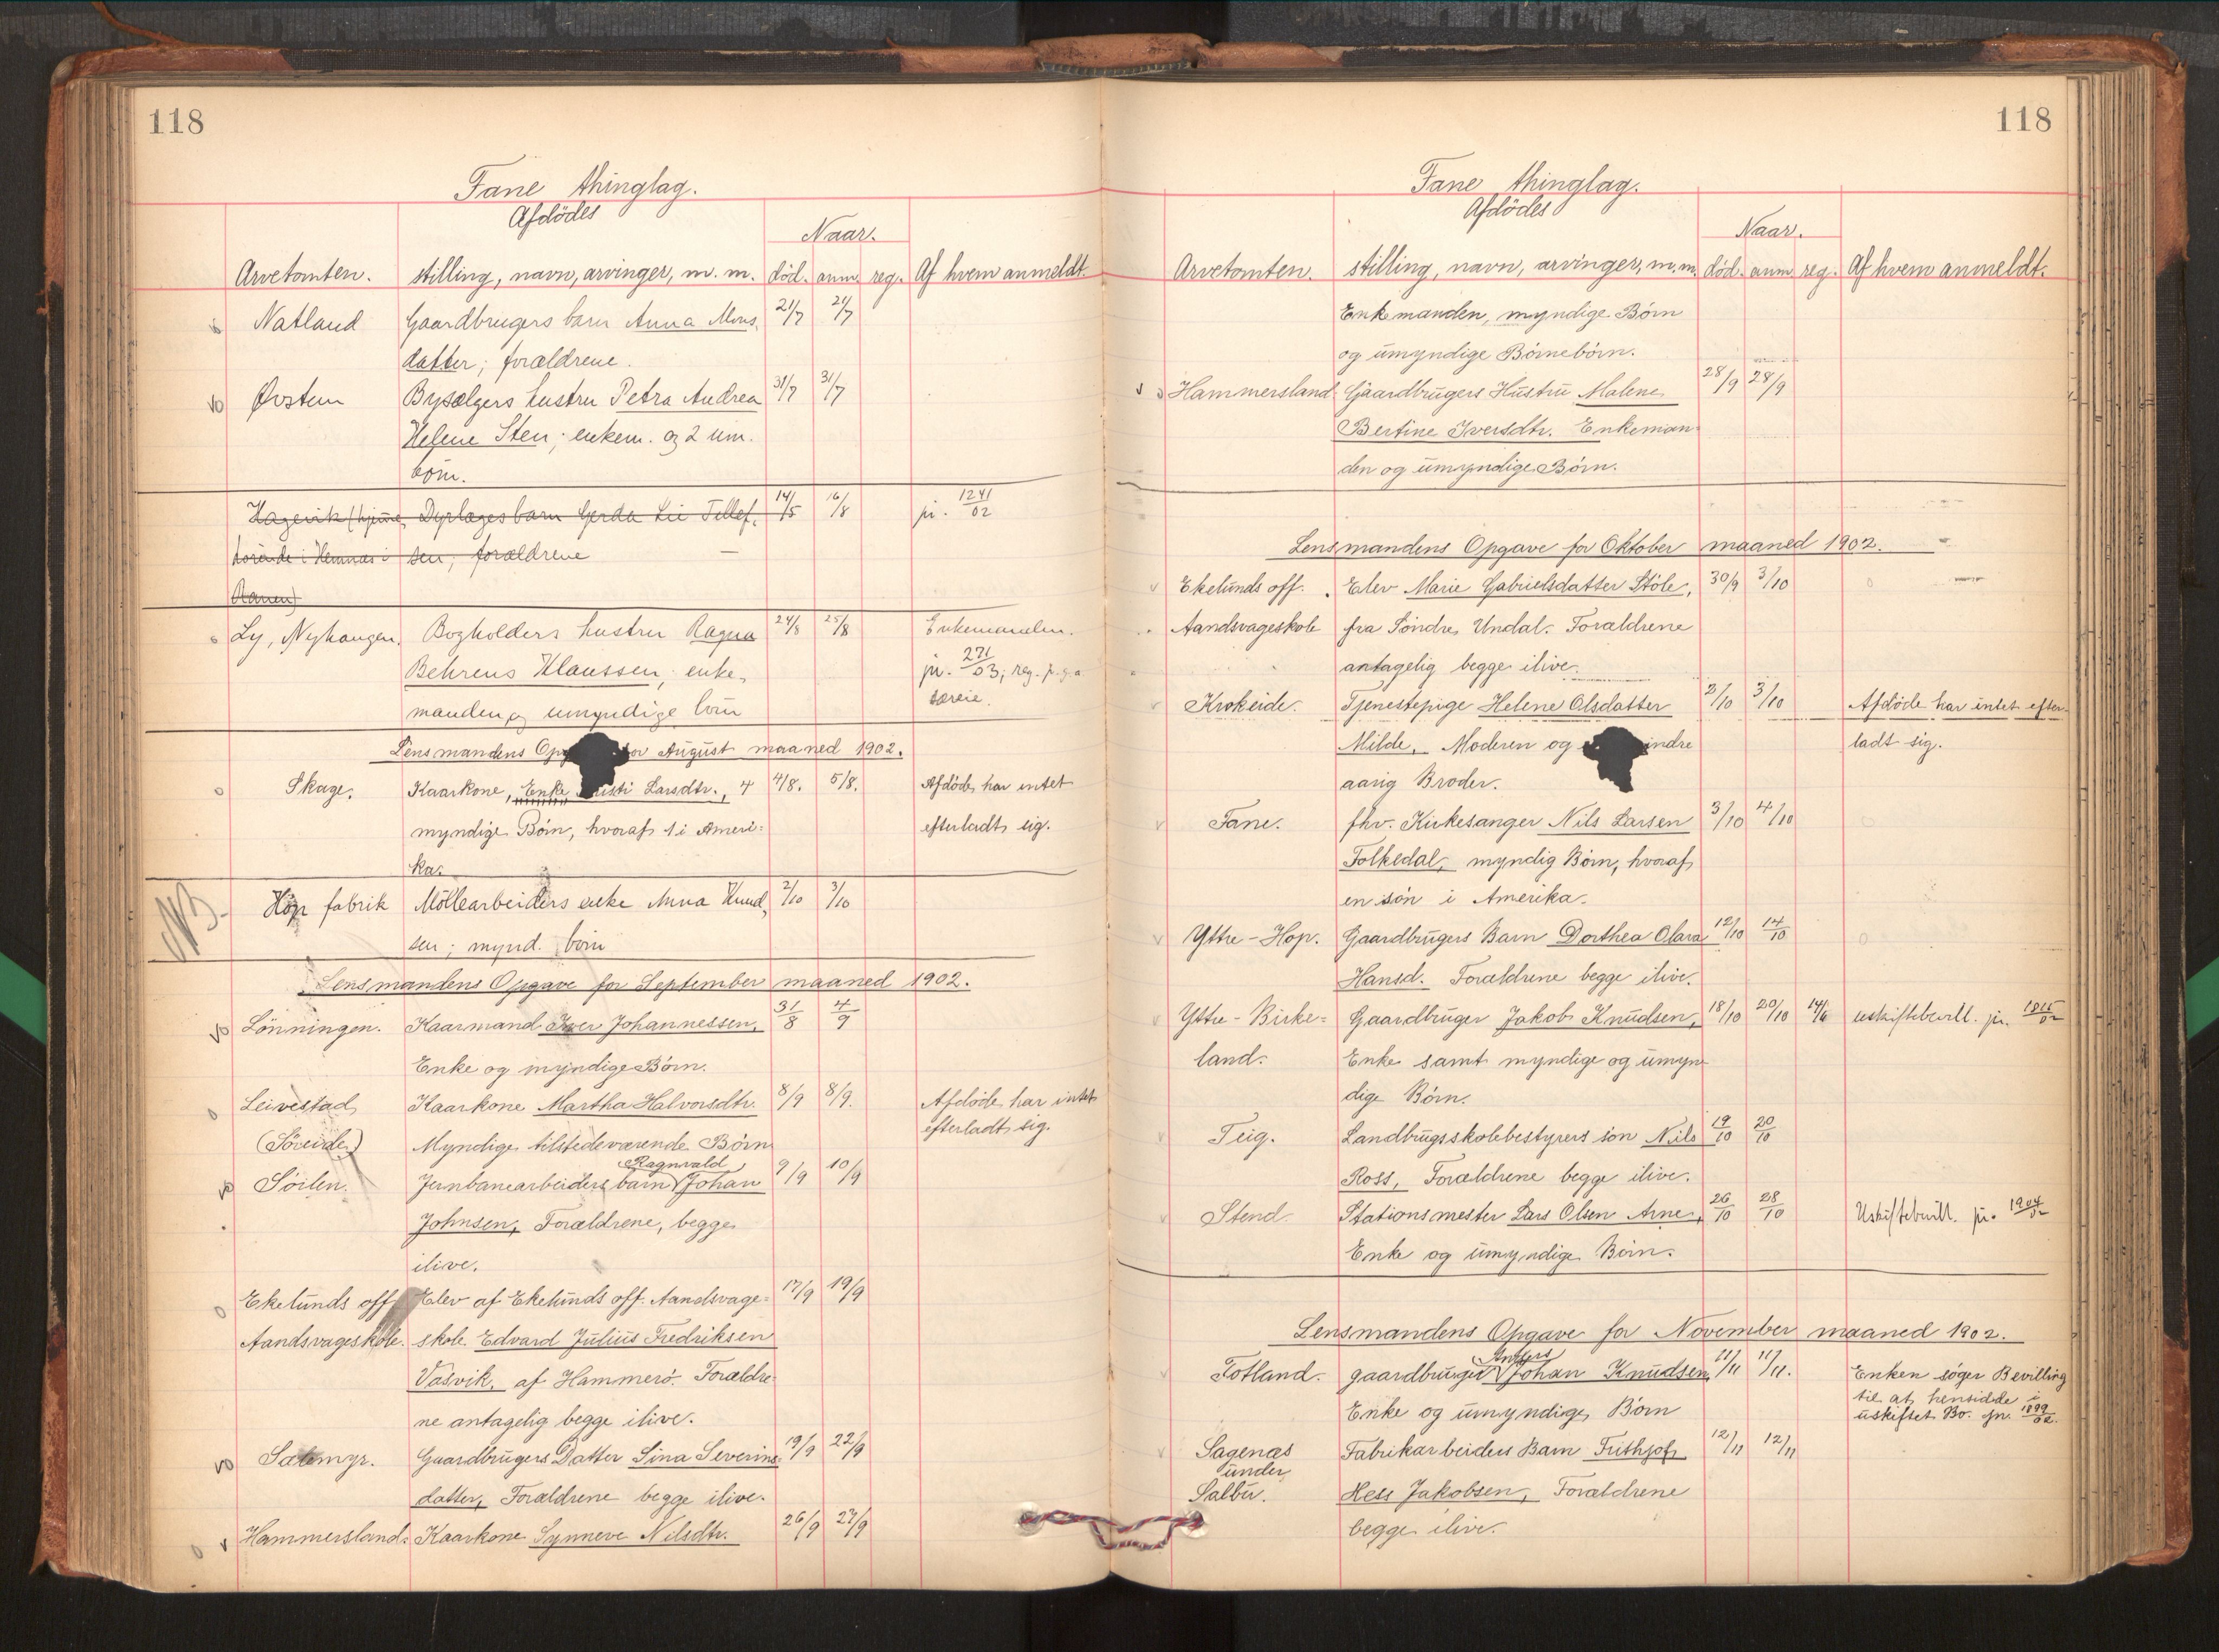 118
Fane thinglag.
Afdödes
Naar.
Arvetomten. stilling, navn, arvinger, m. m. död. anm. reg. Af hvem anmeldt.
Natland Gaardbrugers barn Anna Mons. 21/7 21/7
datter; forældrene.
Øvstun Bysælgers hustru Petra Andrea 31/7 31/7
Helene Sten; enkem. og 2 um.
börn.
Hagevik (hjemme Dyrlæges barn Gerda Lie Tellef. 14/5 16/8 jr. 1241/02
hörende i Hemnæs i sen; forældrene
Ranen)
Ly, Nyhaugen. Bogholders hustru Ragna 24/8 25/8 Enkemanden.
Behrens Klaussen; enke, jr. 271/03; reg. p. g. a
manden og umyndige börn særeie.
Lensmandens for August maaned 1902.
Skage. Kaarkone, Enke Larsdtr., 4 4/8. 5/8. Afdöde har intet
myndige Börn, hvoraf 1 i Ameri= efterladt sig.
ka.
NB. Hóp fabrik Möllearbeiders enke Anna Knud, 2/10 3/10
sen; mynd. börn
Lensmandens Opgave for September maaned 1902.
Lönningen. Kaarmand Iver Johannessen, 31/8 4/9
Enke og myndige Börn.
Leivestad Kaarkone Martha Halvorsdtr. 8/9 8/9. Afdöde har intet
(Söreide) Myndige tilstedeværende Börn efterladt sig.
Ragnvald
Söilen. Jernbanearbeiders barn Johan 9/9 10/9
Johnsen, Forældrene, begge
ilive.
Ekelunds off. Elev af Ekelunds off. Aandsvage= 17/9 19/9
Aandsvageskole. skole Edvard Julius Fredriksen
Vasvik, af Hammerö. Forældre=
ne antagelig begge ilive.
Sætemyr. Gaardbrugers Datter Sina Severins= 19/9 22/9
datter, Forældrene begge ilive.
Hammersland. Kaarkone Synneve Nilsdtr. 26/9 27/9
118
Fane thinglag.
Afdödes
Naar.
Arvetomten. stilling, navn, arvinger, m. m. död. anm. reg. Af hvem anmeldt.
Enkemanden, myndige Börn
og umyndige Börnebörn.
Hammersland. Gaardbrugers Hustru Malene 28/9 28/9
Bertine Iversdtr. Enkeman=
den og umyndige Börn.
Lensmandens Opgave for Oktober maaned 1902.
Ekelunds off. Elev Marie Gabrielsdatter Stöle, 30/9 3/10
Aandsvageskole fra Söndre Undal. Forældrene
antagelig begge ilive.
Krokeide. Tjenestepige Helene Olsdatter 2/10 3/10 Afdöde har intet efter=
Milde, Moderen og ladt sig.
aarig Broder.
Fane. fhv. Kirkesanger Nils Larsen 3/10 4/10
Folkedal, myndig Börn, hvoraf
en sön i Amerika.
Yttre-Hop. Gaardbrugers Barn Dorthea Olava 12/10 14/10
Hansd. Forældrene begge ilive.
Yttre-Birke= Gaardbruger Jakob Knudsen, 18/10 20/10 uskiftebevill. jr. 1815/02
land. Enke samt myndige og umyn=
dige Börn.
Teig. Landbrugsskolebestyrers sön Nils 19/10 20/10
Ross, Forældrene begge ilive.
Stend. Stationsmester Lars Olsen Arne, 26/10 28/10 Uskiftebevill. jr. 1904/02
Enke og umyndige Börn.
Lensmandens Opgave for November maaned 1902.
Anders
Totland. gaardbruger Johan Knudsen, 11/11 11/11. Enken söger Bevilling
til at hensidde i
Enke og umyndige Börn uskiftet Bo. jnr. 1899/02.
Sagenæs Fabrikarbeiders Barn Frithjof 12/11 12/11
under
Salbu. Hess Jakobsen, Forældrene
begge ilive.